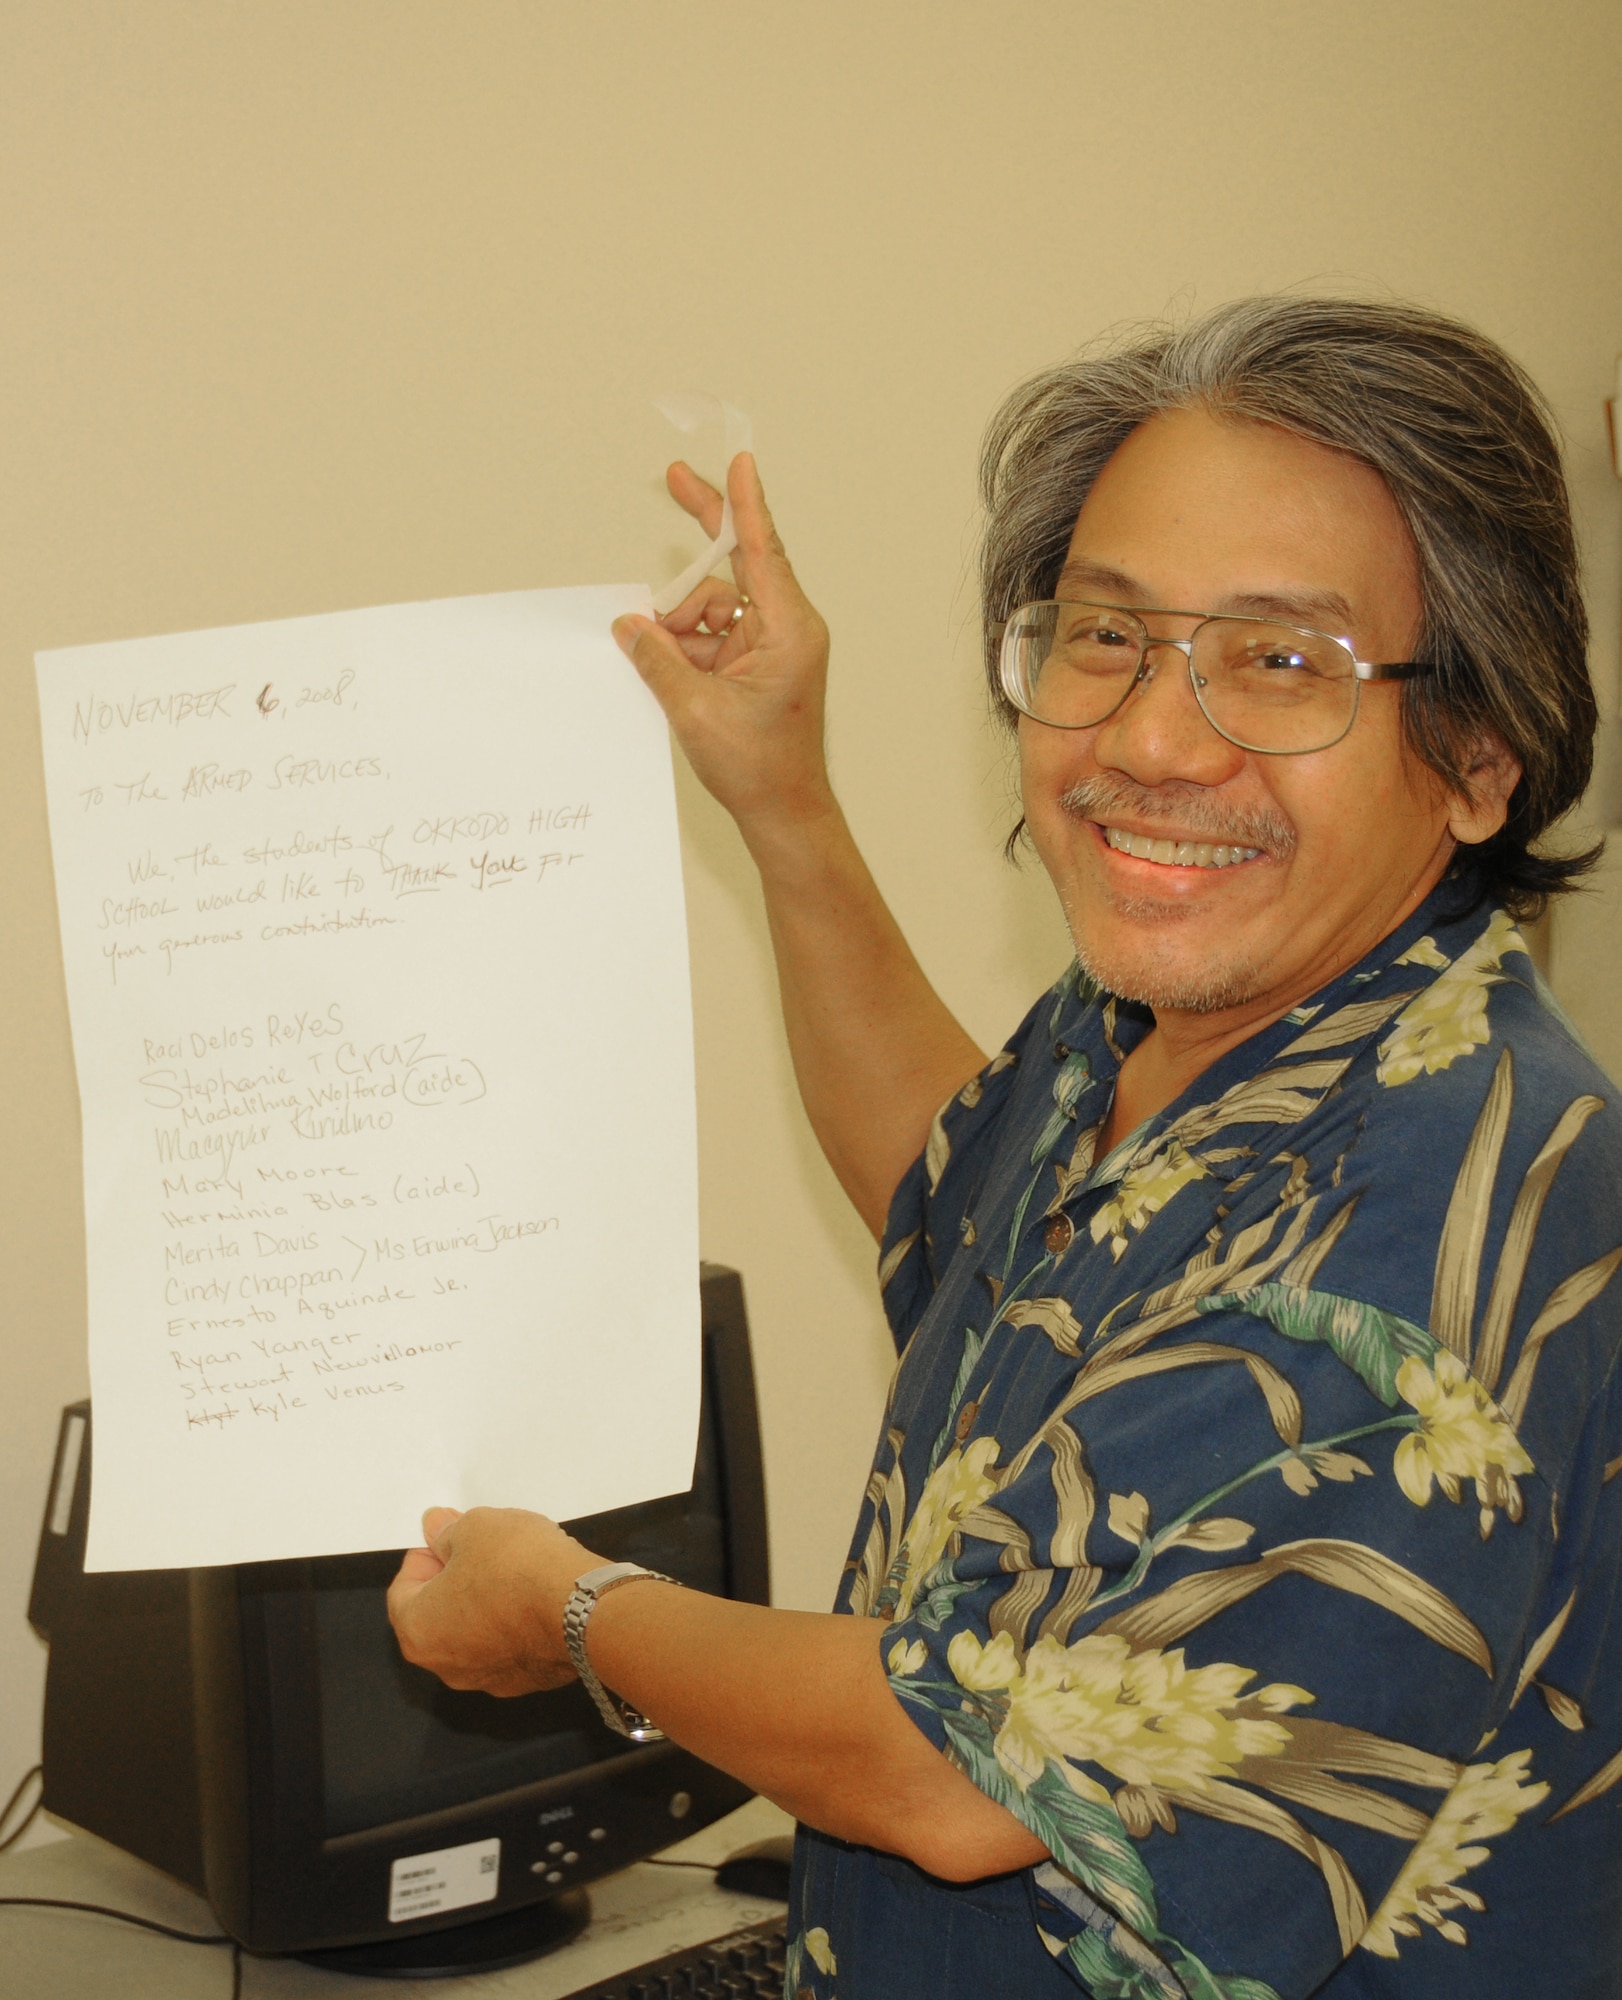 NOVEMBER 6, 2008,
TO The ARMED SERVICES,
We, the students of OKKODO HIGH
SCHOOL would like to THANK YOU FOR
your generous contribution.
Raci Delos ReYeS
Stephanie T Cruz
Madelihna Wolford (aide)
Macgyver
Mary Moore
Herminia Blas (aide)
Merita Davis > Ms. Erwina Jackson
Cindy Chappan
Ernesto Aguinde Jr.
Ryan Yanger
Stewart Newvillamor
Kyle Venus
DELL